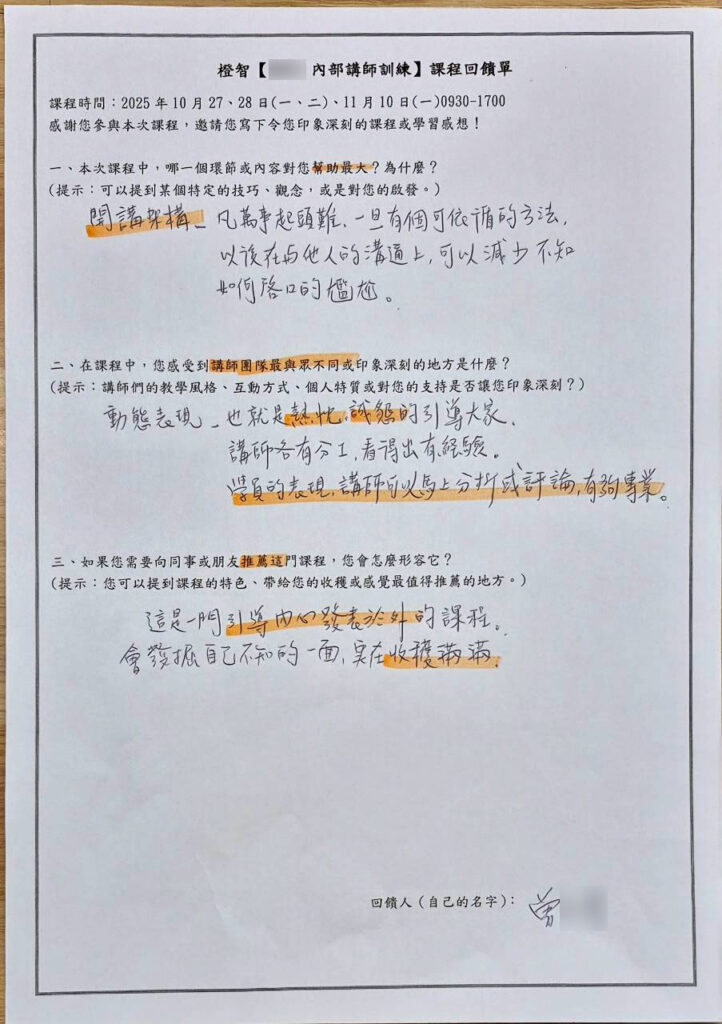 橙智【 內部講師訓練】課程回饋單
課程時間：2025 年 10 月 27、28 日(一、二)、11 月 10 日(一)0930-1700
感謝您參與本次課程，邀請您寫下令您印象深刻的課程或學習感想！
一、本次課程中，哪一個環節或內容對您幫助最大？為什麼？
(提示：可以提到某個特定的技巧、觀念，或是對您的啟發。)
開講架構－凡萬事起頭難、一旦有個可依循的方法，
以後在與他人的溝通上，可以減少不知
如何啓口的尷尬。
二、在課程中，您感受到講師團隊最與眾不同或印象深刻的地方是什麼？
(提示：講師們的教學風格、互動方式、個人特質或對您的支持是否讓您印象深刻？)
動態表現－也就是熱忱，誠懇的引導大家，
講師各有分工，看得出有經驗。
學員的表現，講師可以馬上分析或評論，有夠專業。
三、如果您需要向同事或朋友推薦這門課程，您會怎麼形容它？
(提示：您可以提到課程的特色、帶給您的收穫或感覺最值得推薦的地方。)
這是一門引導內心發表於外的課程。
會發掘自己不知的一面，實在收穫滿滿。
回饋人（自己的名字）： 曾